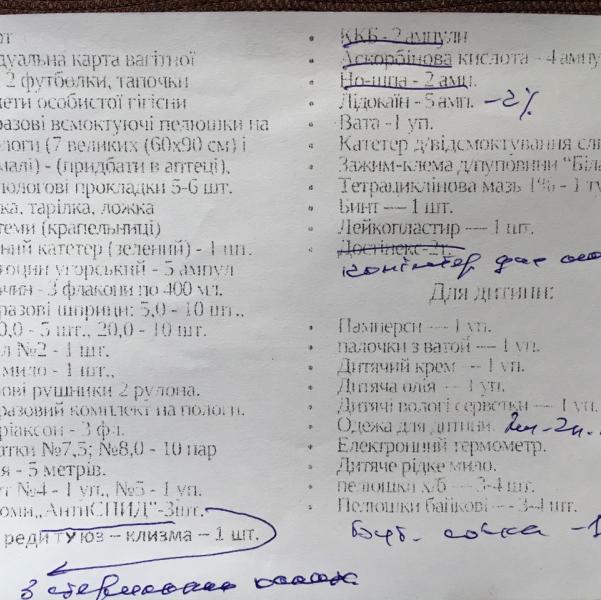 от
дуальна карта вагітної
2 футболки, тапочки
мети особистої гігієни
разові всмоктуючі пелюшки на
логи (7 великих (60х90 см) і
малі) - (придбати в аптеці),
пологові прокладки 5-6 шт.
ка, тарілка, ложка
теми (крапельниці)
ний катетер (зелений) - 1 шт.
тоцин угорський - 5 ампул
чин - 3 флакони по 400 мл.
разові шприци: 5,0 - 10 шт.,
0,0 - 5 шт., 20,0 - 10 шт.
л №2 - 1 шт.
мило - 1 шт.,
ові рушники 2 рулона.
разовий комплект на пологи.
ріаксон - 3 фл.
атки №7,5; №8,0 - 10 пар
я - 5 метрів.
т №4 - 1 уп., №5 - 1 уп.
"АнтиСПИД"-3шт.
реди туюз – клизма – 1 шт.
З
• ККБ - 2 ампули
• Аскорбінова кислота - 4 ампу
• Но-шпа - 2 амп.
• Лідокаїн - 5 амп. -2%
• Вата -1 уп.
• Катетер д/відсмоктування сли
• Зажим-клема д/пуповини "Біла
• Тетрациклінова мазь 1% - 1 ту
• Бинт — 1 шт.
• Лейкопластир — 1 шт.
• Достінекс-2т.
контейнер для
Для дитини:
• Памперси — 1 уп.
• палочки з ватой — 1 уп.
• Дитячий крем -- 1 уп.
• Дитяча олія — 1 уп.
• Дитячі вологі серветки — 1 уп.
• Одежа для дитини.
• Електронний термометр.
• Дитяче рідке мило.
• пелюшки х/б — 3-4 шт.
• Пелюшки байкові -- 3-4 шт.
Бут. соска -1